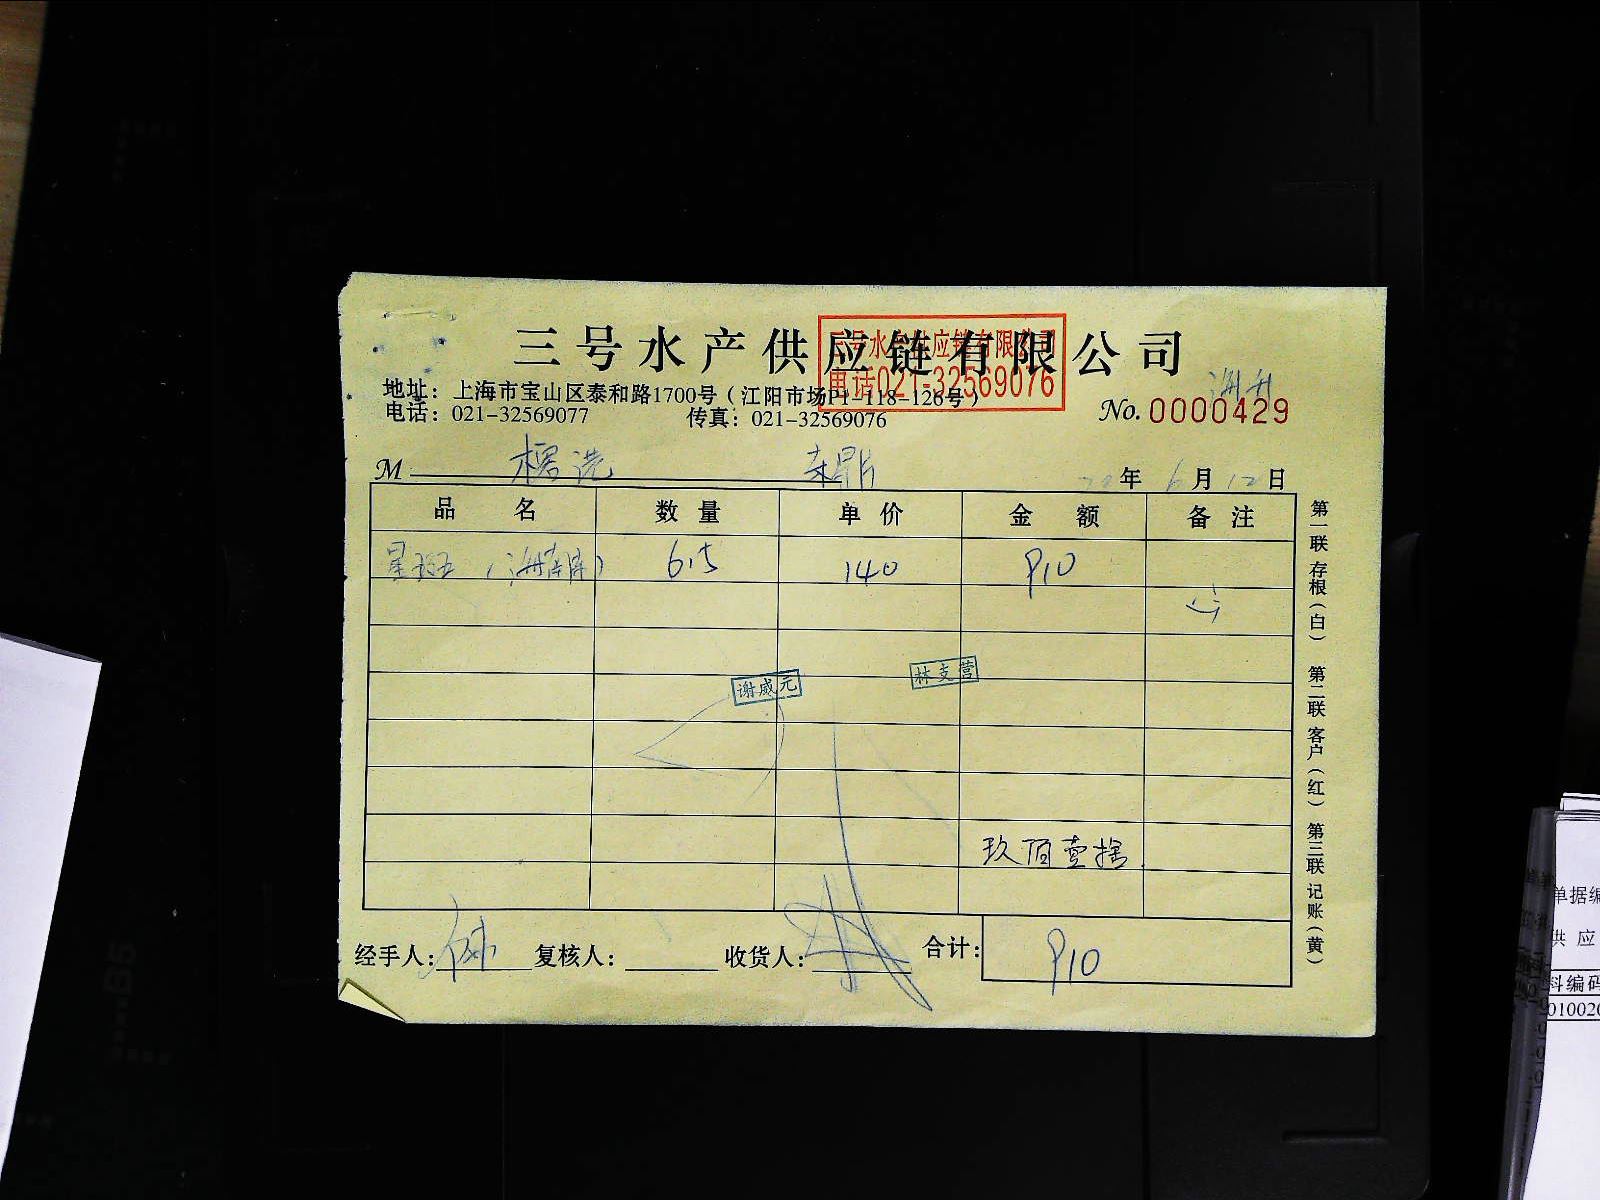 三号水产供应链有限公司
三号水产供应链有限公司
电话021-32569076
地址：上海市宝山区泰和路1700号（江阳市场P1-118-126号）
电话：021-32569077 传真：021-32569076
No. 0000429
M 榕港
20年 6月 12日
品名 数量 单价 金额 备注
星斑（海南 6.5 140 910
谢威元 林支营
玖佰壹拾
经手人： 复核人： 收货人： 合计： 910
第一联存根（白） 第二联客户（红） 第三联记账（黄）
单据编
供应
料编码
010020